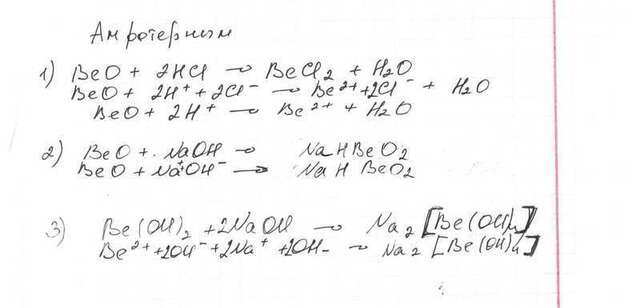 Амфотерным
1) BeO + 2HCl → BeCl₂ + H₂O
BeO + 2H⁺ + 2Cl⁻ → Be²⁺ + 2Cl⁻ + H₂O
BeO + 2H⁺ → Be²⁺ + H₂O
2) BeO + NaOH → NaHBeO₂
BeO + Na⁺OH⁻ → NaHBeO₂
3) Be(OH)₂ + 2NaOH → Na₂[Be(OH)₄]
Be²⁺ + 2OH⁻ + 2Na⁺ + 2OH⁻ → Na₂[Be(OH)₄]